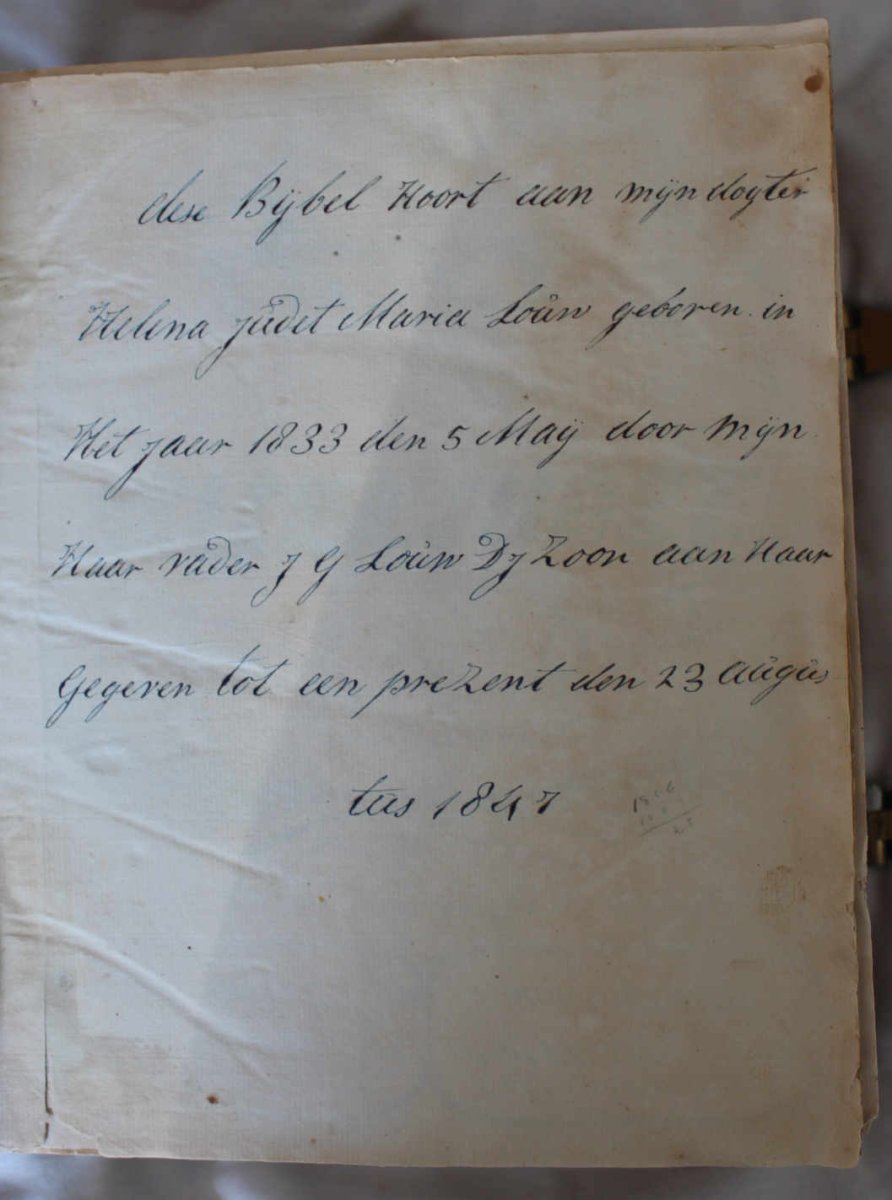 dese Bijbel Hoort aan mijn dogter
Helena judet Maria Louw geboren in
Het jaar 1833 den 5 Maij door Mijn
Haar vader J G Louw DJ Zoon aan Haar
Gegeven tot een preZent den 23 augus
tus 1847